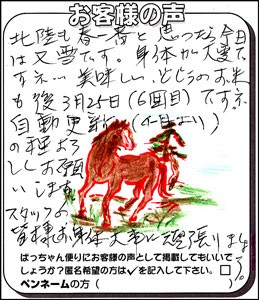 お客様の声
北陸も春一番と思ったら今日
は又雪です。身体が大変で
すネ… 美味しいぶどうのお米
も後3月25日(6回目)ですネ
自動更新(4月より)
の程よろ
しくお願
いします
スタッフの
皆様お身体大事に頑張りましょう。
ばっちゃん便りにお客様の声として掲載してもいいで
しょうか?匿名希望の方は✓を記入して下さい。□
ペンネームの方( )